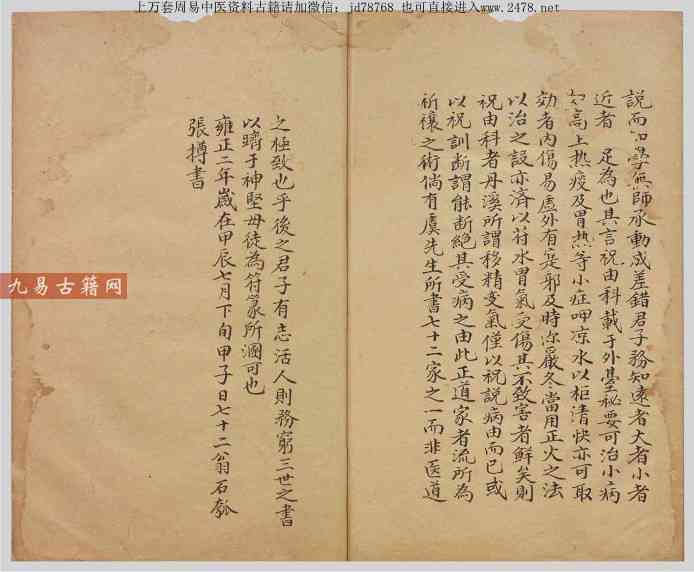 上万套周易中医资料古籍请加微信：jd78768 也可直接进入www.2478.net
説而 學無師承動成差錯君子務知遠者大者小者
近者 足為也其言祝由科載于外臺秘要可治小病
如高上热疫及胃热等小症呷凉水以柜清快亦可取
効者内傷易虚外有寒邪及時深嚴冬當用正火之法
以治之設亦済以符水胃氣受傷其不致害者鮮矣則
祝由科者丹溪所謂移精变氣僅以祝説病由而已或
以祝訓断謂能断絶其受病之由此正道家者流所為
祈禳之術倘有虞先生所書七十二家之一而非医道
之極致也乎後之君子有志活人則務窮三世之書
以躋于神聖毋徒為符篆所溷可也
雍正二年歲在甲辰七月下旬甲子日七十二翁石瓠
張摶書
九易古籍网